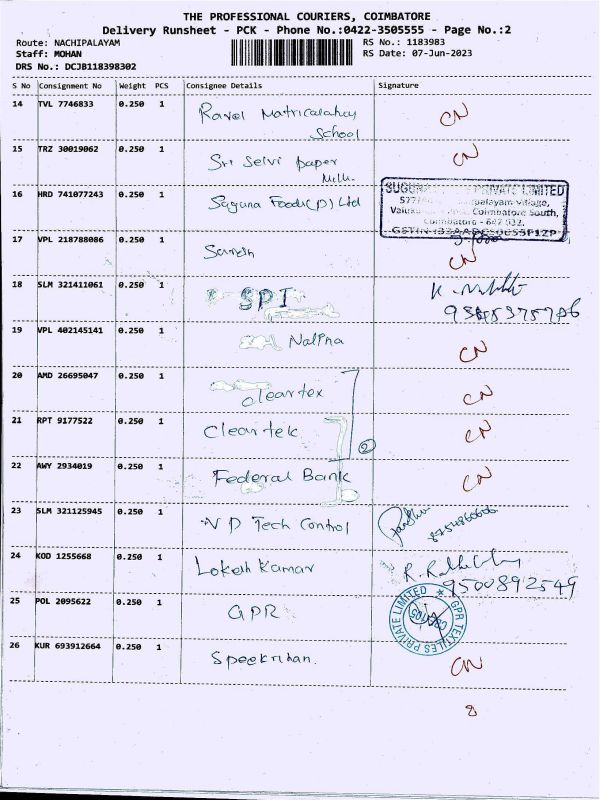 THE PROFESSIONAL COURIERS, COIMBATORE
Delivery Runsheet - PCK - Phone No.:0422-3505555 - Page No.:2
Route: NACHIPALAYAM RS No.: 1183983
Staff: MOHAN RS Date: 07-Jun-2023
DRS No.: DCJB118398302
S No Consignment No Weight PCS Consignee Details Signature
14 TVL 7746833 0.250 1 Ravel Matriculation CN
School
15 TRZ 30019062 0.250 1 Sri Selvi paper CN
Mills
16 HRD 741077243 0.250 1 Suguna Foods (P) Ltd
SUGUNA PRIVATE LIMITED
palayam Village,
Coimbatore South,
Coimbatore - 642
17 VPL 218788086 0.250 1 CN
18 SLM 321411061 0.250 1 SPI
19 VPL 402145141 0.250 1 Nalina CN
20 AMD 26695047 0.250 1 Cleartex CN
21 RPT 9177522 0.250 1 Cleartek CN
2
22 AWY 2934019 0.250 1 Federal Bank CN
23 SLM 321125945 0.250 1 V P Tech Control
24 KOD 1255668 0.250 1 Lokesh Kumar R.
9500892549
25 POL 2095622 0.250 1 GPR
GPR TEXTILES PRIVATE LIMITED
26 KUR 693912664 0.250 1 CN
8